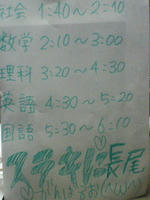 社会 1:40〜2:10
数学 2:10〜3:00
理科 3:20〜4:30
英語 4:30〜5:20
国語 5:30〜6:10
長尾